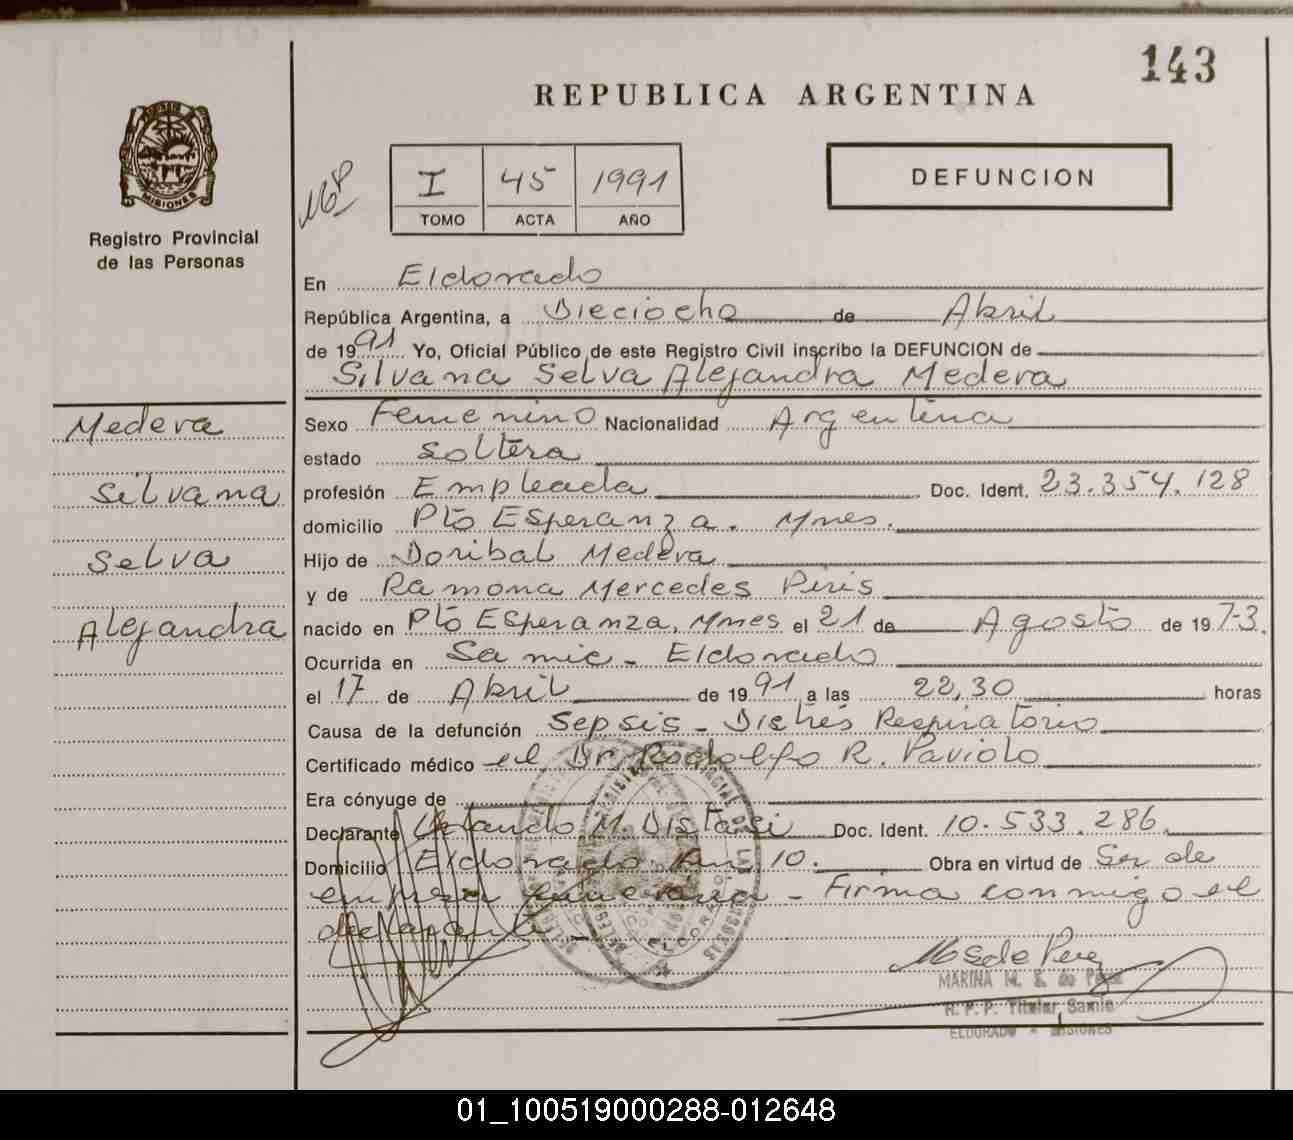 143
REPUBLICA ARGENTINA
MISIONES
Registro Provincial
de las Personas
I 45 1991
TOMO ACTA AÑO
DEFUNCION
En Eldorado
República Argentina, a Dieciocho de Abril
de 1991 Yo, Oficial Público de este Registro Civil inscribo la DEFUNCION de
Silvana Selva Alejandra Medera
Medera
Silvana
Selva
Alejandra
Sexo Femenino Nacionalidad Argentina
estado soltera
profesión Empleada Doc. Ident. 23.354.128
domicilio Pto Esperanza. Mnes.
Hijo de Doribal Medera
y de Ramona Mercedes Piris
nacido en Pto Esperanza, Mnes el 21 de Agosto de 197-3.
Ocurrida en Samic - Eldorado
el 17 de Abril de 1991 a las 22,30 horas
Causa de la defunción Sepsis - Distrés Respiratorio
Certificado médico el Dr. Rodolfo R. Paviolo
Era cónyuge de
Declarante Orlando M. Distasi Doc. Ident. 10.533.286
Domicilio Eldorado Km 10. Obra en virtud de Ser de
empresa funeraria - Firma conmigo el
declarante -
MARINA M. S. de Perez
R. P. P. Titular Samic
ELDORADO - MISIONES
01_100519000288-012648